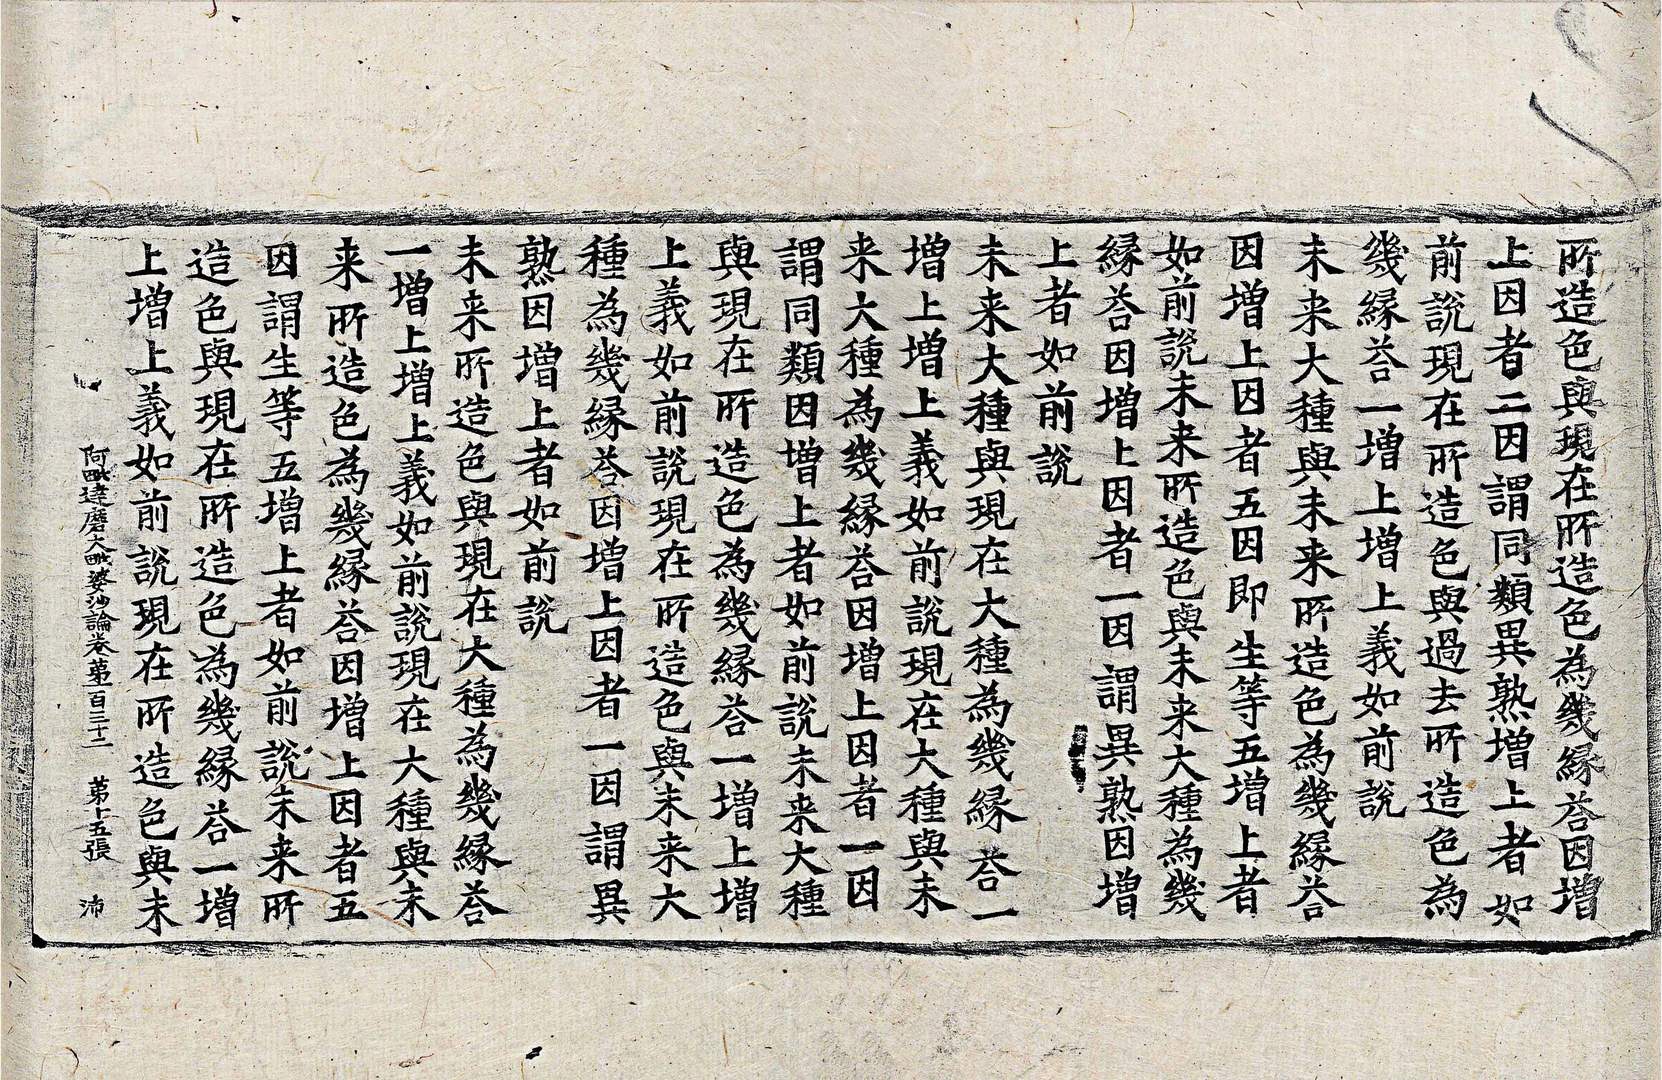 所造色與現在所造色為幾縁荅因增
上因者二因謂同類異熟增上者如
前說現在所造色與過去所造色為
幾縁荅一增上增上義如前說
未来大種與未来所造色為幾縁荅
因增上因者五因即生等五增上者
如前說未来所造色與未来大種為幾
縁荅因增上因者一因謂異熟因增
上者如前說
未来大種與現在大種為幾縁荅一
增上增上義如前說現在大種與未
来大種為幾縁荅因增上因者一因
謂同類因增上者如前說未来大種
與現在所造色為幾縁荅一增上增
上義如前說現在所造色與未来大
種為幾縁荅因增上因者一因謂異
熟因增上者如前說
未来所造色與現在大種為幾縁荅
一增上增上義如前說現在大種與未
来所造色為幾縁荅因增上因者五
因謂生等五增上者如前說未来所
造色與現在所造色為幾縁荅一增
上增上義如前說現在所造色與未
阿毗達磨大毗婆沙論卷第一百三十二 第十五張 沛